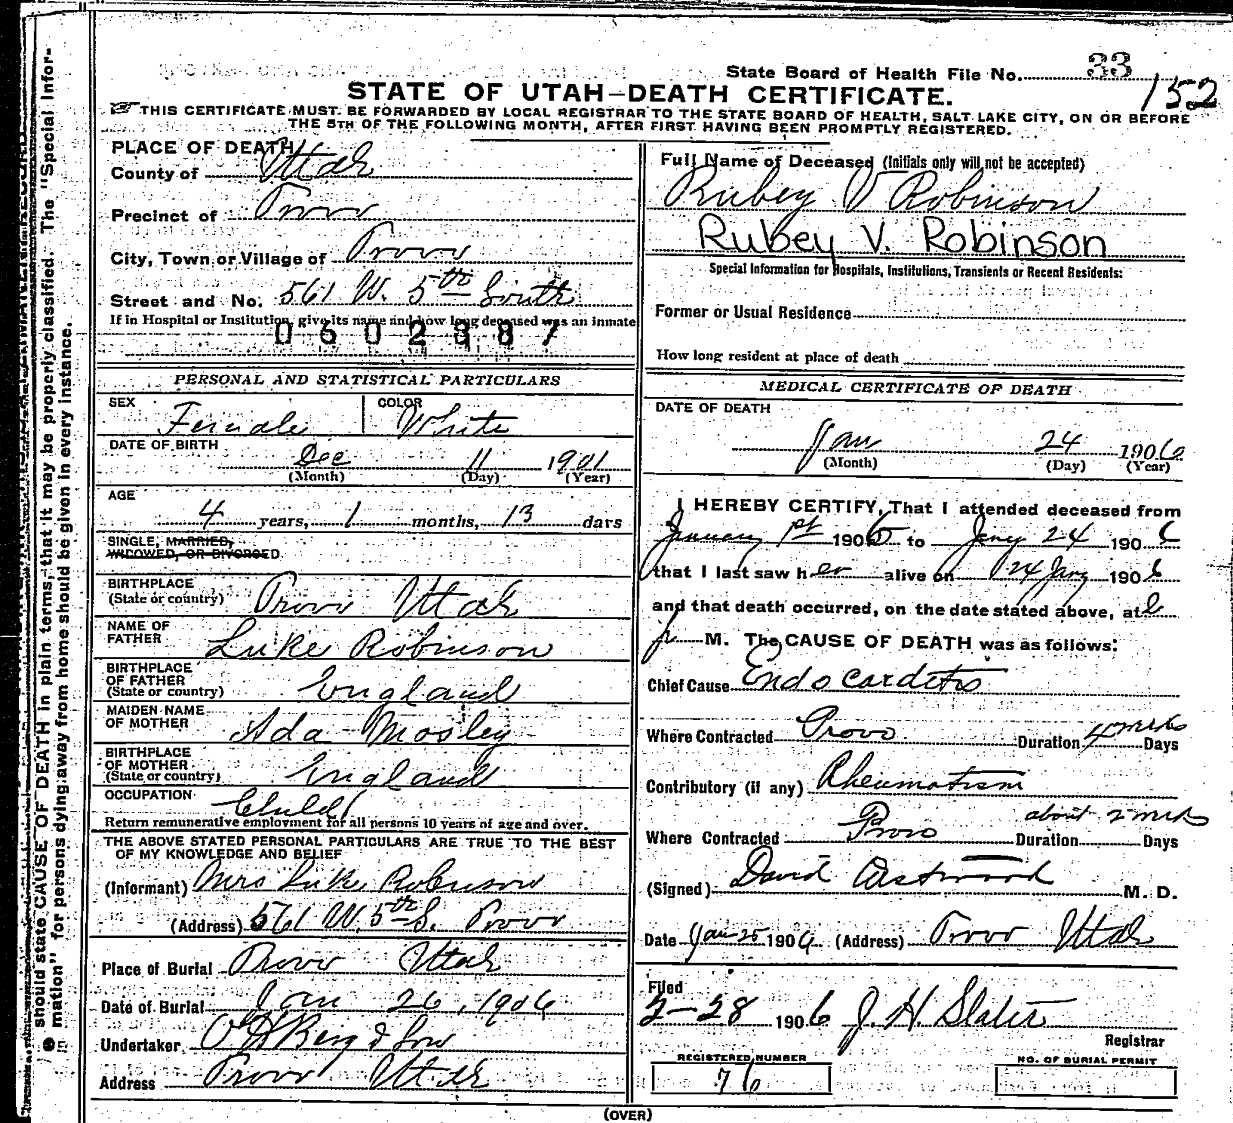 should state CAUSE OF DEATH in plain terms, that it may be properly classified. The "Special Infor-
mation" for persons dying away from home should be given in every instance.
State Board of Health File No. 33
152
STATE OF UTAH—DEATH CERTIFICATE.
THIS CERTIFICATE MUST BE FORWARDED BY LOCAL REGISTRAR TO THE STATE BOARD OF HEALTH, SALT LAKE CITY, ON OR BEFORE
THE 5TH OF THE FOLLOWING MONTH, AFTER FIRST HAVING BEEN PROMPTLY REGISTERED.
PLACE OF DEATH
County of Utah
Precinct of Provo
City, Town or Village of Provo
Street and No. 561 W. 5th South
If in Hospital or Institution, give its name and how long deceased was an inmate
0602387
PERSONAL AND STATISTICAL PARTICULARS
SEX Female COLOR White
DATE OF BIRTH
Dec 11 1901
(Month) (Day) (Year)
AGE
4 years, 1 months, 13 days
SINGLE, MARRIED,
WIDOWED, OR DIVORCED
BIRTHPLACE
(State or country) Provo Utah
NAME OF
FATHER Luke Robinson
BIRTHPLACE
OF FATHER
(State or country) England
MAIDEN NAME
OF MOTHER Ada Mosley
BIRTHPLACE
OF MOTHER
(State or country) England
OCCUPATION Child
Return remunerative employment for all persons 10 years of age and over.
THE ABOVE STATED PERSONAL PARTICULARS ARE TRUE TO THE BEST
OF MY KNOWLEDGE AND BELIEF
(Informant) Mrs Luke Robinson
(Address) 561 W. 5th S. Provo
Place of Burial Provo Utah
Date of Burial Jan 26, 1906
Undertaker O H Berg & Son
Address Provo Utah
Full Name of Deceased (Initials only will not be accepted)
Rubey V Robinson
Rubey V. Robinson
Special Information for Hospitals, Institutions, Transients or Recent Residents:
Former or Usual Residence
How long resident at place of death
MEDICAL CERTIFICATE OF DEATH
DATE OF DEATH
Jan 24 1906
(Month) (Day) (Year)
I HEREBY CERTIFY, That I attended deceased from
January 1st 1906 to Jany 24 1906
that I last saw her alive on 24 Jany 1906
and that death occurred, on the date stated above, at
M. The CAUSE OF DEATH was as follows:
Chief Cause Endocarditis
Where Contracted Provo Duration 4 wks Days
Contributory (if any) Rheumatism
about 2 wks
Where Contracted Provo Duration Days
(Signed) David Westwood M. D.
Date Jan 25 1906 (Address) Provo Utah
Filed
2-28 1906 J. H. Slater
Registrar
REGISTERED NUMBER
76
NO. OF BURIAL PERMIT
(OVER)